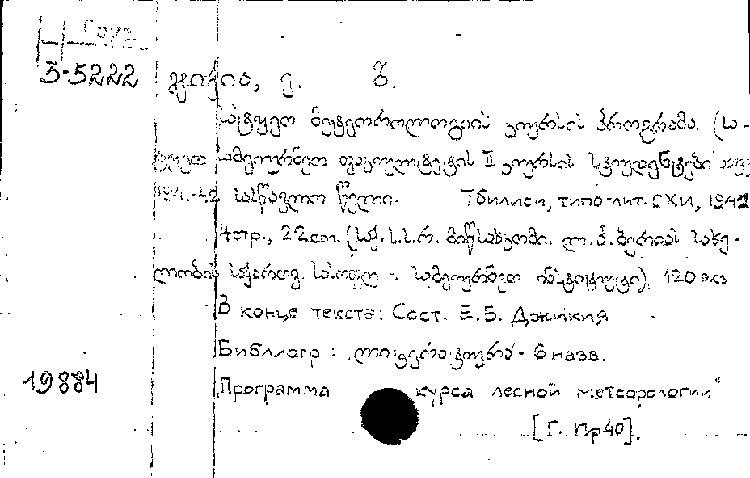 3-5222 ჯიქია, ე. ბ.
სატყეო მეტეოროლოგიის კურსის პროგრამა. (სა-
ტყეო სამეურნეო ფაკულტეტის II კურსის სტუდენტები
1941-42 სასწავლო წელი. Тбилиси, типо-лит. СХИ, 1942
4 стр., 22 см. (საქ. ს.ს.რ. მიწსახკომი. ლ. პ. ბერიას სახე-
ლობის საქართვ. სასოფლ - სამეურნეო ინსტიტუტი). 120 экз
В конце текста: Сост. Е.Б. Джикия
Библиогр: "ლიტერატურა" - 6 назв.
19884 Программа курса лесной метеорологии"
[Г. Пр40].